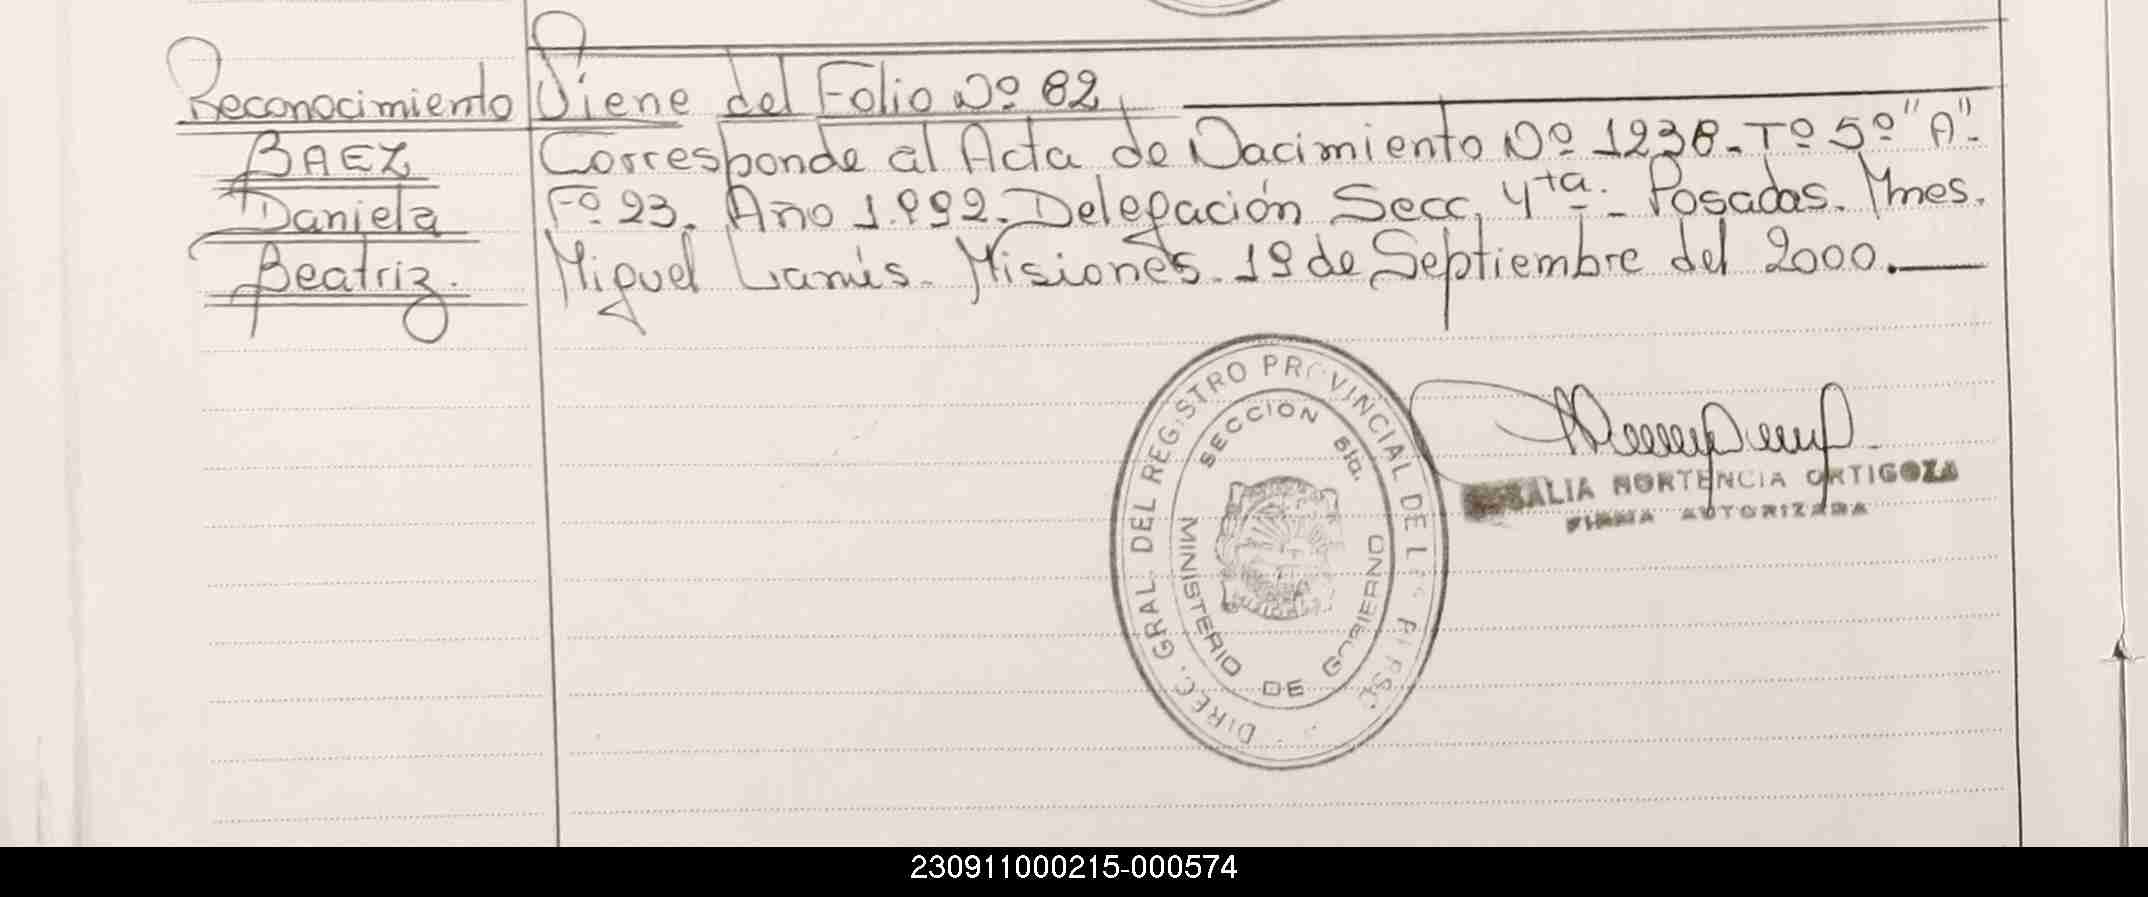 Reconocimiento
BAEZ
Daniela
Beatriz.
Viene del Folio Nº 82
Corresponde al Acta de Nacimiento Nº 1238. Tº 5º "A".
Fº 23. Año 1.992. Delegación Secc. 4ta. Posadas. Mnes.
Miguel Lanús. Misiones. 19 de Septiembre del 2000.
DIREC. GRAL. DEL REGISTRO PROVINCIAL DE
SECCION 5ta.
MINISTERIO DE GOBIERNO
HORTENCIA ORTIGOZA
FIRMA AUTORIZADA
230911000215-000574